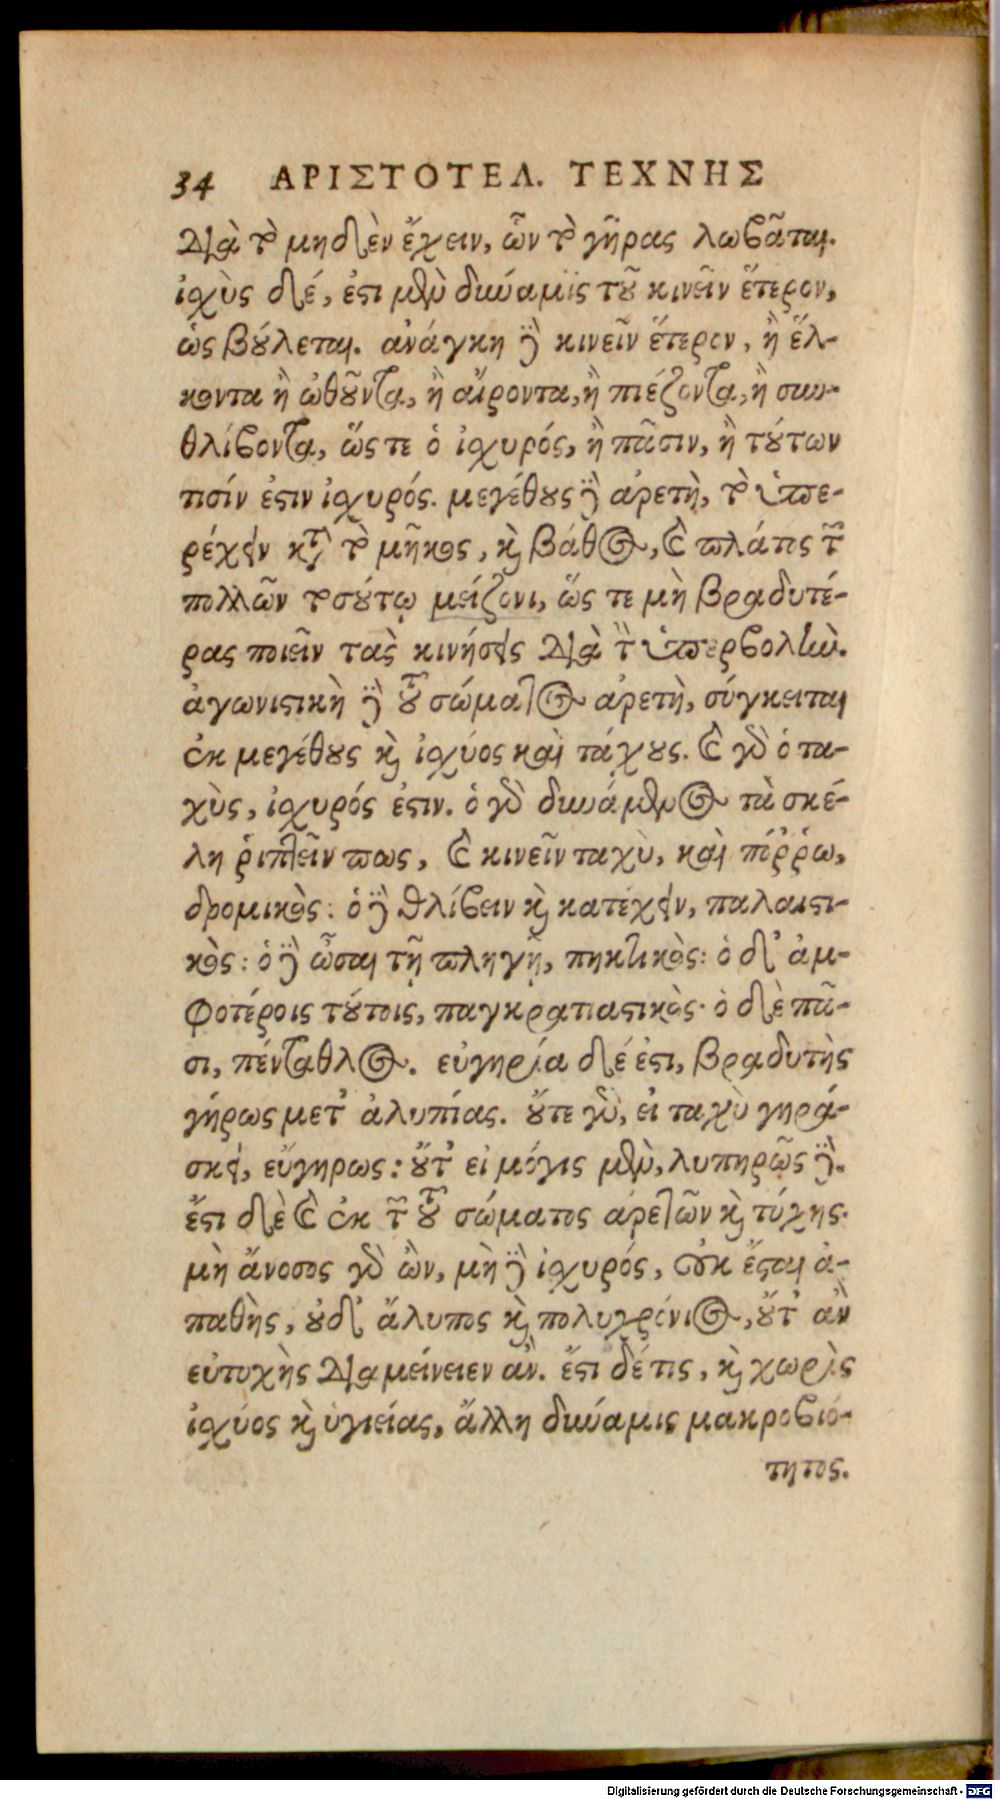 34 ΑΡΙΣΤΟΤΕΛ. ΤΕΧΝΗΣ
διὰ τὸ μηδὲν ἔχειν, ὧν τὸ γῆρας λωβᾶται.
ἰχὺς δέ, ἐστι μὲν δύναμις τοῦ κινεῖν ἕτερον,
ὡς βούλεται. ἀνάγκη δὲ κινεῖν ἕτερον, ἢ ἕλ-
κοντα ἢ ὠθοῦντα, ἢ αἴροντα, ἢ πιέζοντα, ἢ συν-
θλίβοντα, ὥς τε ὁ ἰχυρός, ἢ πᾶσιν, ἢ τούτων
τισίν ἐστιν ἰχυρός. μεγέθους δὲ ἀρετὴ, τὸ ὑπε-
ρέχειν κατὰ τὸ μῆκος, καὶ βάθος, καὶ πλάτος τῶν
πολλῶν τοσούτῳ μείζονι, ὥς τε μὴ βραδυτέ-
ρας ποιεῖν τὰς κινήσεις διὰ τὴν ὑπερβολὴν.
ἀγωνιστικὴ δὲ τοῦ σώματος ἀρετὴ, σύγκειται
ἐκ μεγέθους καὶ ἰχύος καὶ τάχους. καὶ γὰρ ὁ τα-
χὺς, ἰχυρός ἐστιν. ὁ γὰρ δυνάμενος τὰ σκέ-
λη ῥιπτεῖν πως, καὶ κινεῖν ταχὺ, καὶ πόῤῥω,
δρομικὸς: ὁ δὲ θλίβειν καὶ κατέχειν, παλαιστι-
κὸς: ὁ δὲ ὦσαι τῇ πληγῇ, πηκτικὸς: ὁ δ' ἀμ-
φοτέροις τούτοις, παγκρατιαστικὸς· ὁ δὲ πᾶ-
σι, πένταθλος. εὐγηρία δέ ἐστι, βραδυτὴς
γήρως μετ' ἀλυπίας. οὔτε γὰρ, εἰ ταχὺ γηρά-
σκει, εὔγηρως: οὔτ' εἰ μόγις μὲν, λυπηρῶς δέ.
ἔστι δὲ καὶ ἐκ τῶν τοῦ σώματος ἀρετῶν καὶ τύχης.
μὴ ἄνοσος γὰρ ὢν, μὴ δὲ ἰχυρός, οὐκ ἔσται ἀ-
παθὴς, οὐδ' ἄλυπος καὶ πολυχρόνιος, οὔτ' ἂν
εὐτυχὴς διαμείνειεν ἂν. ἔστι δέ τις, καὶ χωρὶς
ἰχύος καὶ ὑγιείας, ἄλλη δύναμις μακροβιό-
τητος.
Digitalisierung gefördert durch die Deutsche Forschungsgemeinschaft - DFG